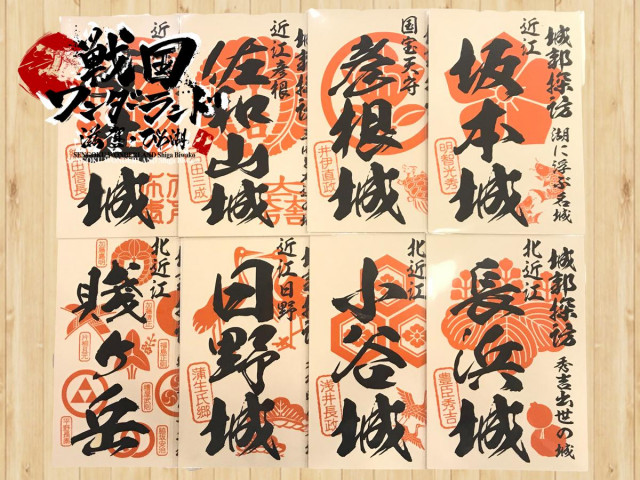 戦国
ワンダーランド
滋賀・びわ湖
近江
城
田信長
近江彦根
城郭探訪
佐和山城
田三成
国宝天守
彦根城
井伊直政
近江
城郭探訪
湖に浮ぶ名城
坂本城
明智光秀
北近江
賤ヶ岳
近江日野
日野城
蒲生氏郷
北近江
小谷城
浅井長政
北近江
城郭探訪
秀吉出世の城
長浜城
豊臣秀吉